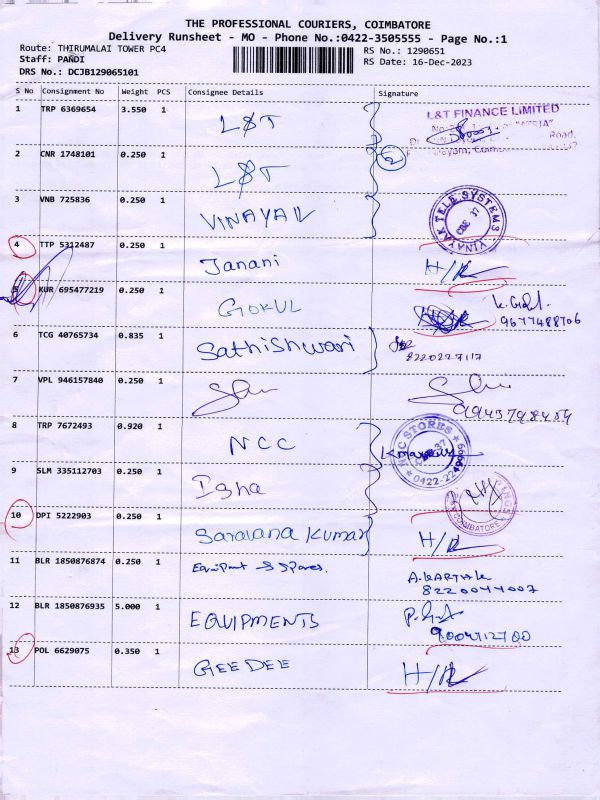 THE PROFESSIONAL COURIERS, COIMBATORE
Delivery Runsheet - MO - Phone No.:0422-3505555 - Page No.:1
Route: THIRUMALAI TOWER PC4
RS No.: 1290651
Staff: PANDI
RS Date: 16-Dec-2023
DRS No.: DCJB129065101
S No Consignment No Weight PCS Consignee Details Signature
1 TRP 6369654 3.550 1 L&T L&T FINANCE LIMITED
Road,
2 CNR 1748101 0.250 1 L&T 2
3 VNB 725836 0.250 1 VINAYAK VINAYAK TELE SYSTEMS
4 TTP 5312487 0.250 1 Janani H/R
5 KUR 695477219 0.250 1 GOKUL
9677488706
6 TCG 40765734 0.835 1 Sathishwari 8220227117
7 VPL 946157840 0.250 1
8 TRP 7672493 0.920 1 NCC NCC STORES
0422-2249909
9 SLM 335112703 0.250 1 Isha COIMBATORE
10 DPI 5222903 0.250 1 Saravana Kumar H/R
11 BLR 1850876874 0.250 1 Equipment & Spares. A.KARTHIK
8220044007
12 BLR 1850876935 5.000 1 EQUIPMENTS
13 POL 6629075 0.350 1 GEEDEE H/R